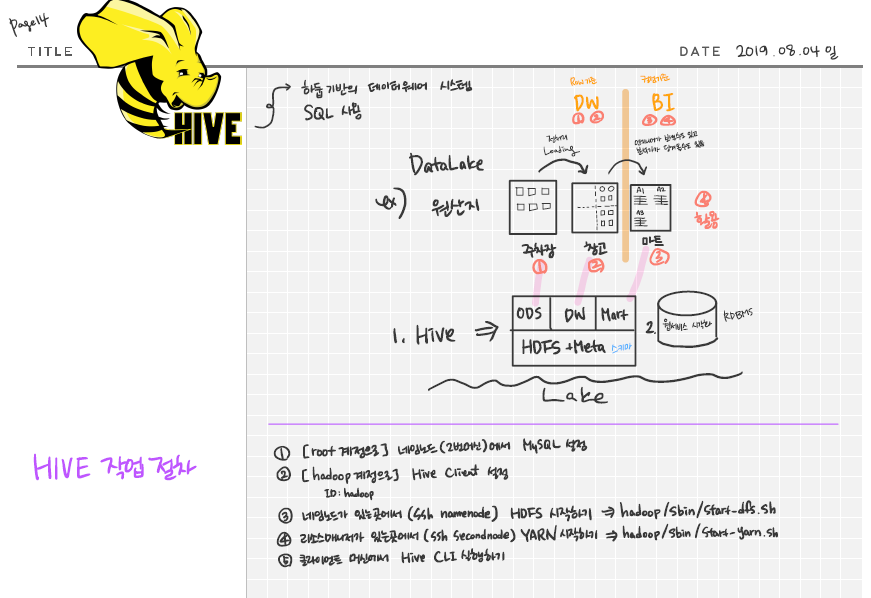 page14
TITLE
DATE 2019.08.04 일
HIVE
하둡기반의 데이터웨어 시스템
SQL 사용
DW
① ②
BI
③ ④
Loading
DataLake
ex) 원산지
A1 A2
A3
④
활용
주차장
창고
마트
①
②
③
1. Hive ⇒
ODS DW Mart
HDFS + Meta 스키마
2. 웹서비스 시각화
RDBMS
Lake
HIVE 작업 절차
① [root 계정으로] 네임노드(2번머신)에서 MySQL 설정
② [hadoop 계정으로] Hive Client 설정
ID: hadoop
③ 네임노드가 있는곳에서 (ssh namenode) HDFS 시작하기 ⇒ hadoop/sbin/start-dfs.sh
④ 리소스매니저가 있는곳에서 (ssh secondnode) YARN 시작하기 ⇒ hadoop/sbin/start-yarn.sh
⑤ 클라이언트 머신에서 Hive CLI 실행하기